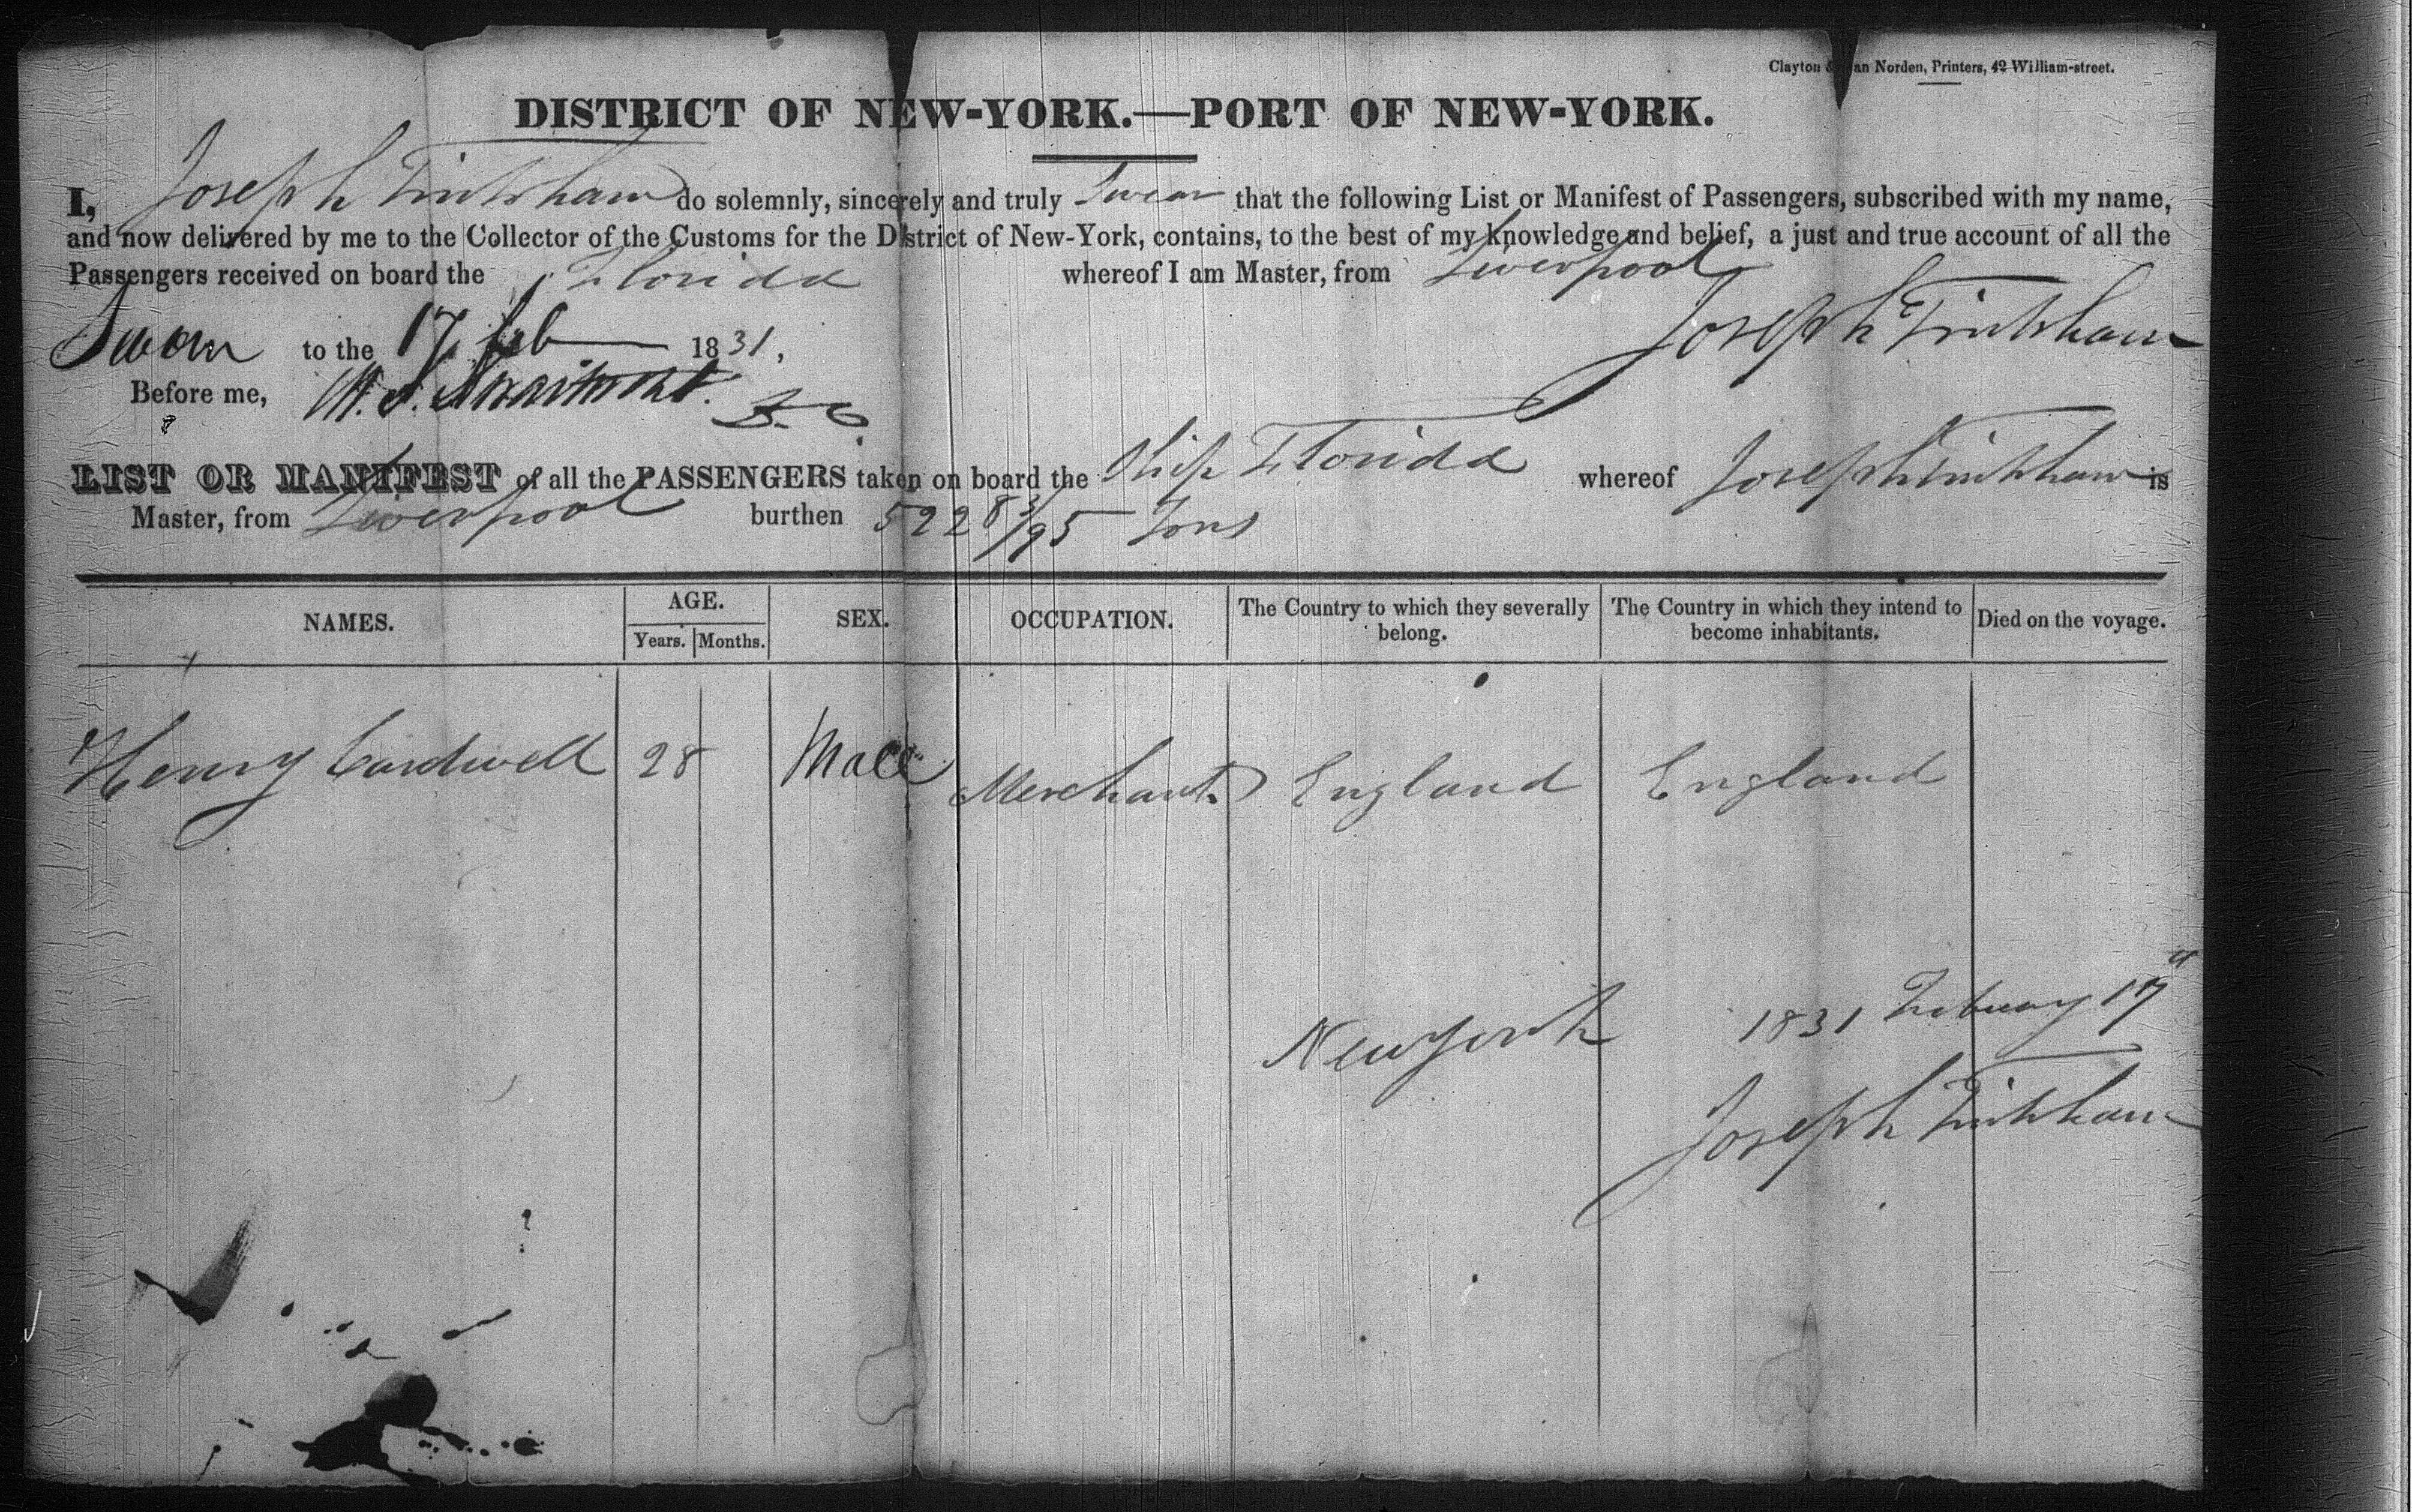 Clayton & Van Norden, Printers, 42 William-street.
DISTRICT OF NEW-YORK.—PORT OF NEW-YORK.
I, Joseph Tinkham do solemnly, sincerely and truly Swear that the following List or Manifest of Passengers, subscribed with my name,
and now delivered by me to the Collector of the Customs for the District of New-York, contains, to the best of my knowledge and belief, a just and true account of all the
Passengers received on board the Florida whereof I am Master, from Liverpool
Joseph Tinkham
Sworn to the 17 feb 1831,
Before me,
LIST OR MANIFEST of all the PASSENGERS taken on board the Ship Florida whereof Joseph Tinkham is
Master, from Liverpool burthen 522 83/95 Tons
NAMES. AGE. SEX. OCCUPATION. The Country to which they severally belong. The Country in which they intend to become inhabitants. Died on the voyage.
Years. Months.
Henry Cardwell 28 Male Merchant England England
New york 1831 Febuary 17
Joseph Tinkham